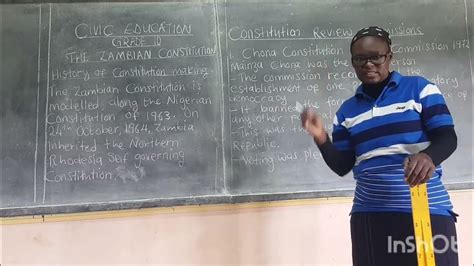 CIVIC EDUCATION
GRADE 10
THE ZAMBIAN CONSTITUTION
History of Constitution making
The Zambian Constitution is
modelled along the Nigerian
Constitution of 1963. On
24th October, 1964, Zambia
inherited the Northern
Rhodesia Self governing
Constitution.
Constitution Review
1. Chona Constitution Commission 1972
Mainza Chona was the
- The commission
establishment of one
democracy
- It banned the
any other
- This was the
Republic.
- Voting was
InShOt